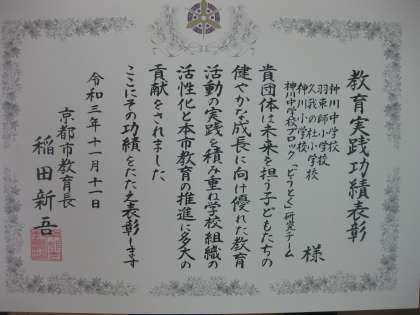 教育実践功績表彰
神川中学校
羽束師小学校
久我の杜小学校
神川小学校
神川中学校ブロック「どうとく」研究チーム
様
貴団体は未来を担う子どもたちの
健やかな成長に向け優れた教育
活動の実践を積み重ね学校組織の
活性化と本市教育の推進に多大の
貢献をされました
ここにその功績をたたえ表彰します
令和三年十一月十一日
京都市教育長
稲田新吾